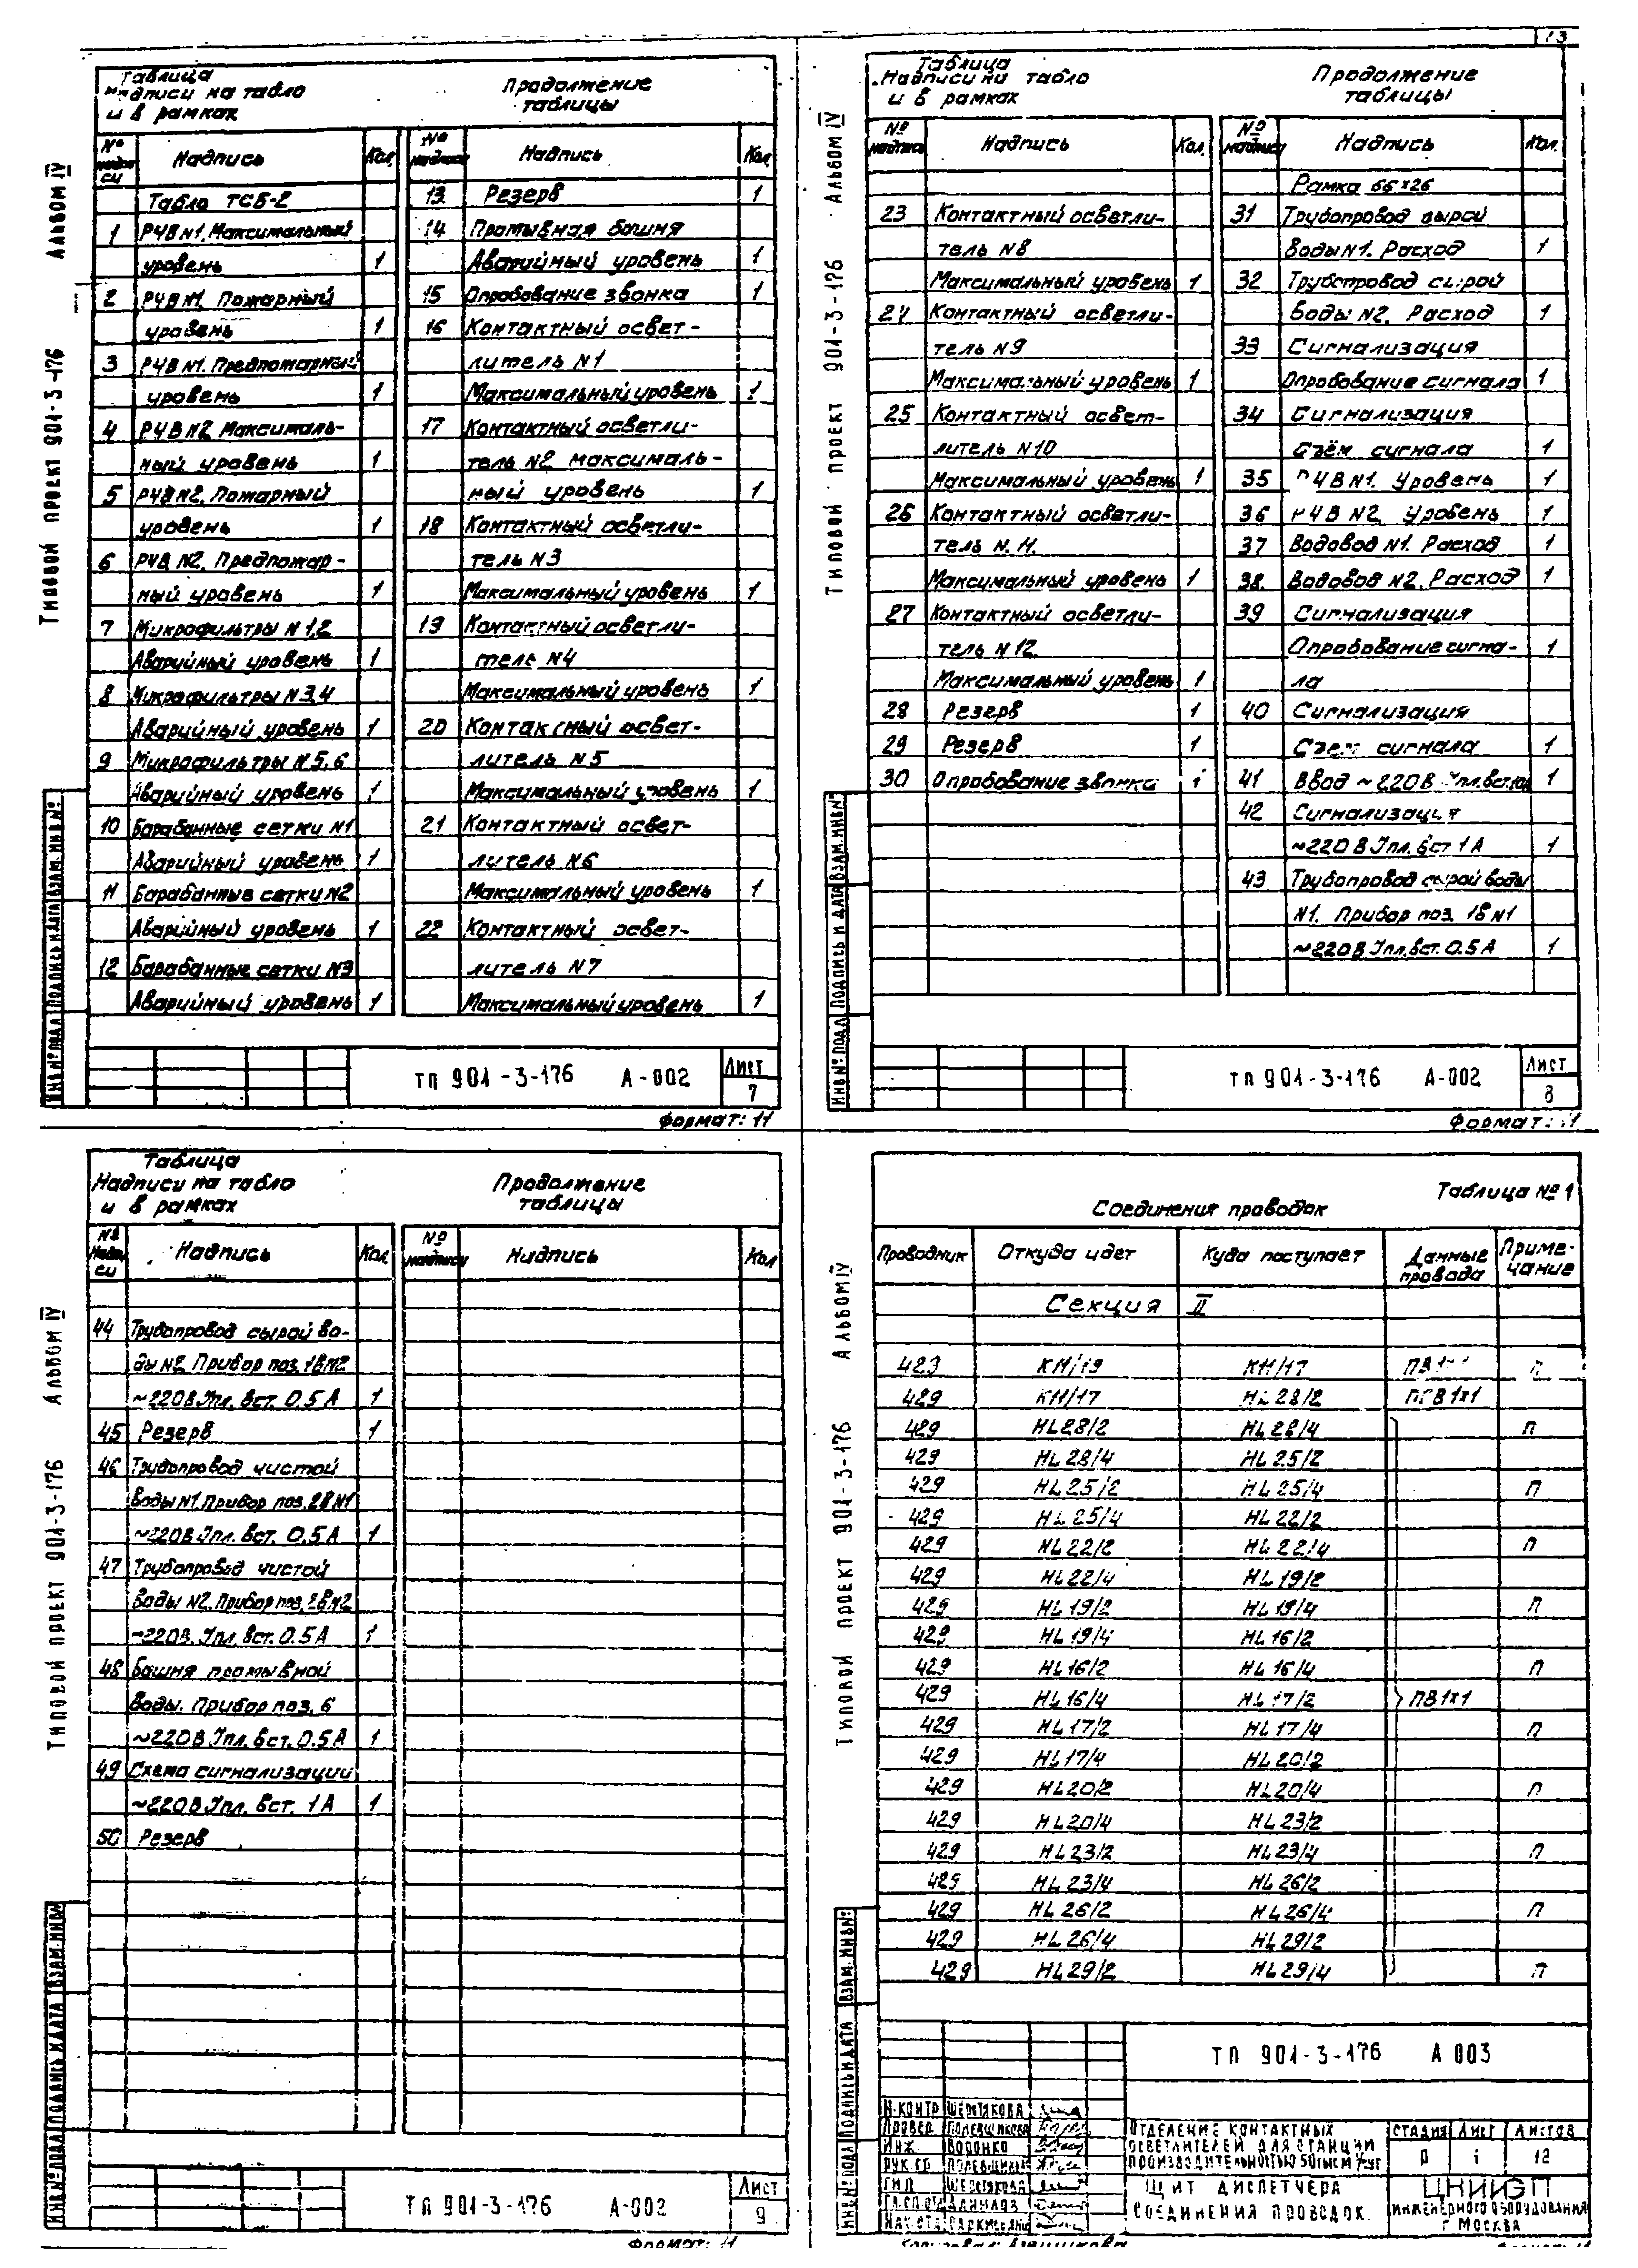 13
Таблица
Надписи на табло
и в рамках
Продолжение
таблицы
№ надписи Надпись Кол. № надписи Надпись Кол.
Табло ТСБ-2
1 РЧВ N1. Максимальный
уровень 1
2 РЧВ N1. Пожарный
уровень 1
3 РЧВ N1. Предпожарный
уровень 1
4 РЧВ N2 Максималь-
ный уровень 1
5 РЧВ N2. Пожарный
уровень 1
6 РЧВ N2. Предпожар-
ный уровень 1
7 Микрофильтры N 1,2
Аварийный уровень 1
8 Микрофильтры N3,4
Аварийный уровень 1
9 Микрофильтры N5,6
Аварийный уровень 1
10 Барабанные сетки N1
Аварийный уровень 1
11 Барабанные сетки N2
Аварийный уровень 1
12 Барабанные сетки N3
Аварийный уровень 1
13 Резерв 1
14 Промывная башня
Аварийный уровень 1
15 Опробование звонка 1
16 Контактный освет-
литель N1
Максимальный уровень 1
17 Контактный осветли-
тель N2 максималь-
ный уровень 1
18 Контактный осветли-
тель N3
Максимальный уровень 1
19 Контактный осветли-
тель N4
Максимальный уровень 1
20 Контактный освет-
литель N5
Максимальный уровень 1
21 Контактный освет-
литель N6
Максимальный уровень 1
22 Контактный освет-
литель N7
Максимальный уровень 1
Типовой проект 901-3-176 Альбом IV
Инв № подл Подпись и дата Взам. инв №
ТП 901-3-176 А-002
Лист
7
Формат: 11
Таблица
Надписи на табло
и в рамках
Продолжение
таблицы
№ надписи Надпись Кол. № надписи Надпись Кол.
23 Контактный осветли-
тель N8
Максимальный уровень 1
24 Контактный осветли-
тель N9
Максимальный уровень 1
25 Контактный освет-
литель N10
Максимальный уровень 1
26 Контактный осветли-
тель N. 11.
Максимальный уровень 1
27 Контактный осветли-
тель N 12.
Максимальный уровень 1
28 Резерв 1
29 Резерв 1
30 Опробование звонка 1
Рамка 66x26
31 Трубопровод сырой
воды N1. Расход 1
32 Трубопровод сырой
воды N2. Расход 1
33 Сигнализация
Опробование сигнала 1
34 Сигнализация
Съём сигнала 1
35 РЧВ N1. Уровень 1
36 РЧВ N2 Уровень 1
37 Водовод N1. Расход 1
38. Водовод N2. Расход 1
39 Сигнализация
Опробование сигна- 1
ла
40 Сигнализация
Съем сигнала 1
41 Ввод ~220В 1
42 Сигнализация
~220 В Iпл. вст 1А 1
43 Трубопровод сырой воды
N1. Прибор поз. 1в N1
~220В Iпл. вст. 0.5А 1
Типовой проект 901-3-176 Альбом IV
Инв № подл Подпись и дата Взам. инв №
ТП 901-3-176 А-002
Лист
8
Формат: 11
Таблица
Надписи на табло
и в рамках
Продолжение
таблицы
№ надписи Надпись Кол. № надписи Надпись Кол
44 Трубопровод сырой во-
ды N2 Прибор поз. 1в N2
~220В Iпл. вст. 0.5А 1
45 Резерв 1
46 Трубопровод чистой
воды N1. Прибор поз. 2в N1
~220В Iпл. вст. 0.5А 1
47 Трубопровод чистой
воды N2. Прибор поз. 2в N2
~220В. Iпл. вст. 0.5А 1
48 Башня промывной
воды. Прибор поз. 6
~220В Iпл. вст. 0.5А 1
49 Схема сигнализации
~220В Iпл. вст. 1А 1
50 Резерв
Типовой проект 901-3-176 Альбом IV
Инв № подл Подпись и дата Взам. инв №
ТП 901-3-176 А-002
Лист
9
Формат: 11
Таблица № 1
Соединения проводок
Проводник Откуда идет Куда поступает Данные провода Примечание
Секция II
423 КМ/19 КМ/17 ПВ 1x1 п
429 КМ/17 HL 28/2 ПГВ 1x1
429 HL28/2 HL 28/4 п
429 HL 28/4 HL 25/2
429 HL 25/2 HL 25/4 п
429 HL 25/4 HL 22/2
429 HL 22/2 HL 22/4 п
429 HL 22/4 HL 19/2
429 HL 19/2 HL 19/4 п
429 HL 19/4 HL 16/2
429 HL 16/2 HL 16/4 п
429 HL 16/4 HL 17/2 ПВ 1x1
429 HL 17/2 HL 17/4 п
429 HL 17/4 HL 20/2
429 HL20/2 HL20/4 п
429 HL20/4 HL 23/2
429 HL23/2 HL23/4 п
429 HL 23/4 HL 26/2
429 HL 26/2 HL 26/4 п
429 HL 26/4 HL 29/2
429 HL29/2 HL29/4 п
Типовой проект 901-3-176 Альбом IV
Инв № подл Подпись и дата Взам. инв №
ТП 901-3-176 А 003
Н.контр Шерстякова
Провер Полевщикова
Инж. Воронко
Рук. гр.
ГИП Шерстякова
Гл. сп. отд Данилов
Нач. отд
Отделение контактных
осветлителей для станции
производительностью 50 тыс м³/сут
Щит диспетчера
Соединения проводок.
Стадия Лист Листов
Р 1 12
ЦНИИЭП
инженерного оборудования
г Москва